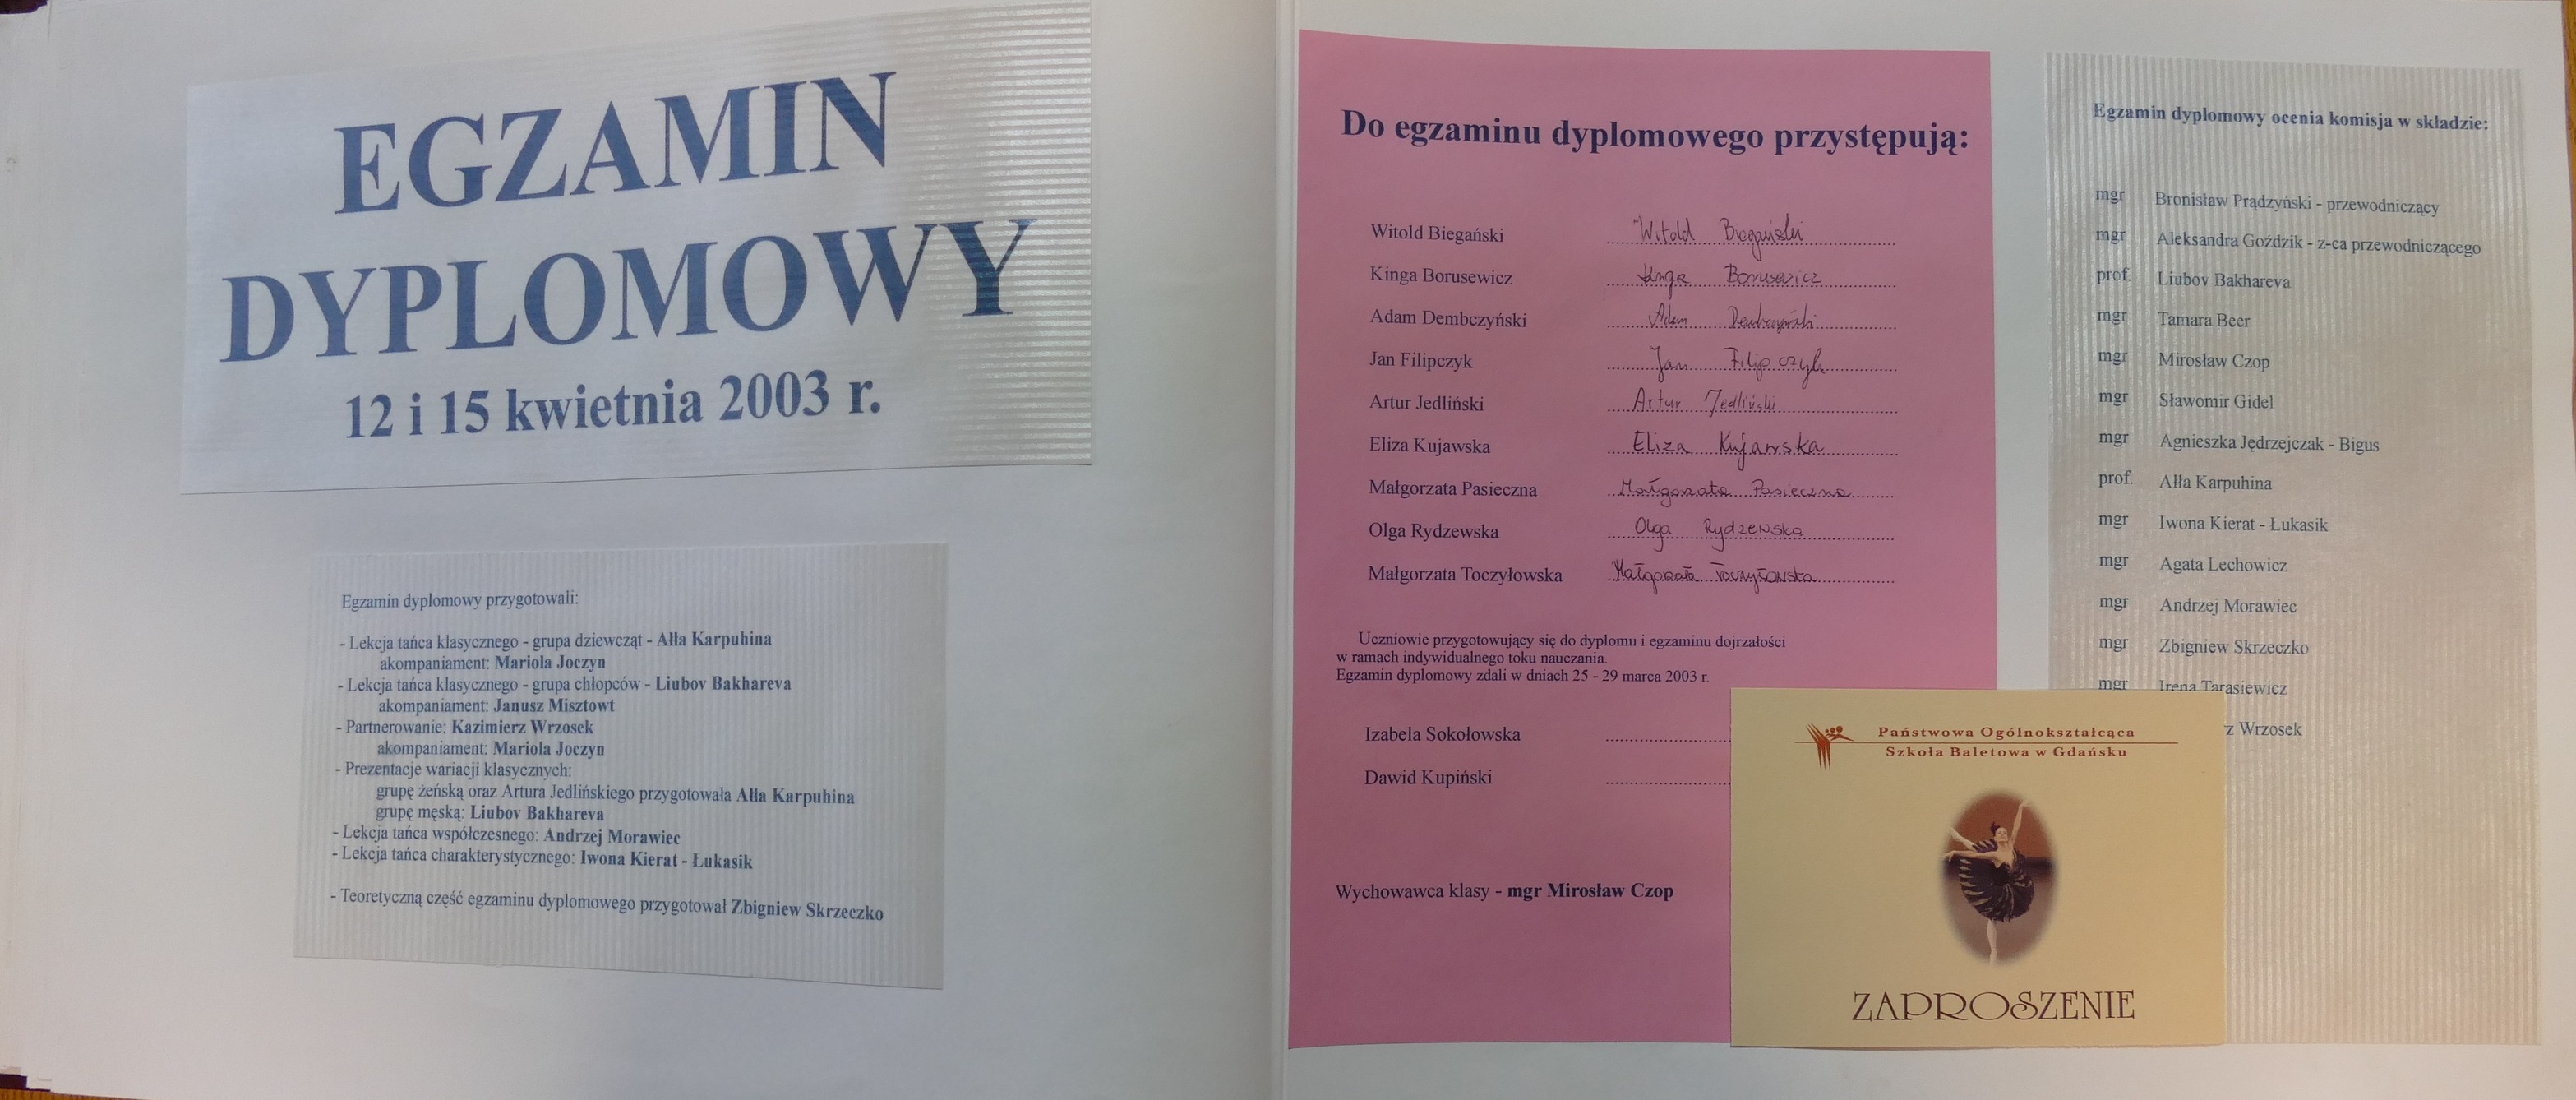 EGZAMIN
DYPLOMOWY
12 i 15 kwietnia 2003 r.
Egzamin dyplomowy przygotowali:
- Lekcja tańca klasycznego - grupa dziewcząt - Ałła Karpuhina
akompaniament: Mariola Joczyn
- Lekcja tańca klasycznego - grupa chłopców - Liubov Bakhareva
akompaniament: Janusz Misztowt
- Partnerowanie: Kazimierz Wrzosek
akompaniament: Mariola Joczyn
- Prezentacje wariacji klasycznych:
grupę żeńską oraz Artura Jedlińskiego przygotowała Ałła Karpuhina
grupę męską: Liubov Bakhareva
- Lekcja tańca współczesnego: Andrzej Morawiec
- Lekcja tańca charakterystycznego: Iwona Kierat - Łukasik
- Teoretyczną część egzaminu dyplomowego przygotował Zbigniew Skrzeczko
Do egzaminu dyplomowego przystępują:
Witold Biegański Witold Biegański
Kinga Borusewicz Kinga Borusewicz
Adam Dembczyński Adam Dembczyński
Jan Filipczyk Jan Filipczyk
Artur Jedliński Artur Jedliński
Eliza Kujawska Eliza Kujawska
Małgorzata Pasieczna Małgorzata Pasieczna
Olga Rydzewska Olga Rydzewska
Małgorzata Toczyłowska Małgorzata Toczyłowska
Uczniowie przygotowujący się do dyplomu i egzaminu dojrzałości
w ramach indywidualnego toku nauczania.
Egzamin dyplomowy zdali w dniach 25 - 29 marca 2003 r.
Izabela Sokołowska
Dawid Kupiński
Wychowawca klasy - mgr Mirosław Czop
Egzamin dyplomowy ocenia komisja w składzie:
mgr Bronisław Prądzyński - przewodniczący
mgr Aleksandra Goździk - z-ca przewodniczącego
prof. Liubov Bakhareva
mgr Tamara Beer
mgr Mirosław Czop
mgr Sławomir Gidel
mgr Agnieszka Jędrzejczak - Bigus
prof. Ałła Karpuhina
mgr Iwona Kierat - Łukasik
mgr Agata Lechowicz
mgr Andrzej Morawiec
mgr Zbigniew Skrzeczko
mgr Irena Tarasiewicz
z Wrzosek
Państwowa Ogólnokształcąca
Szkoła Baletowa w Gdańsku
ZAPROSZENIE